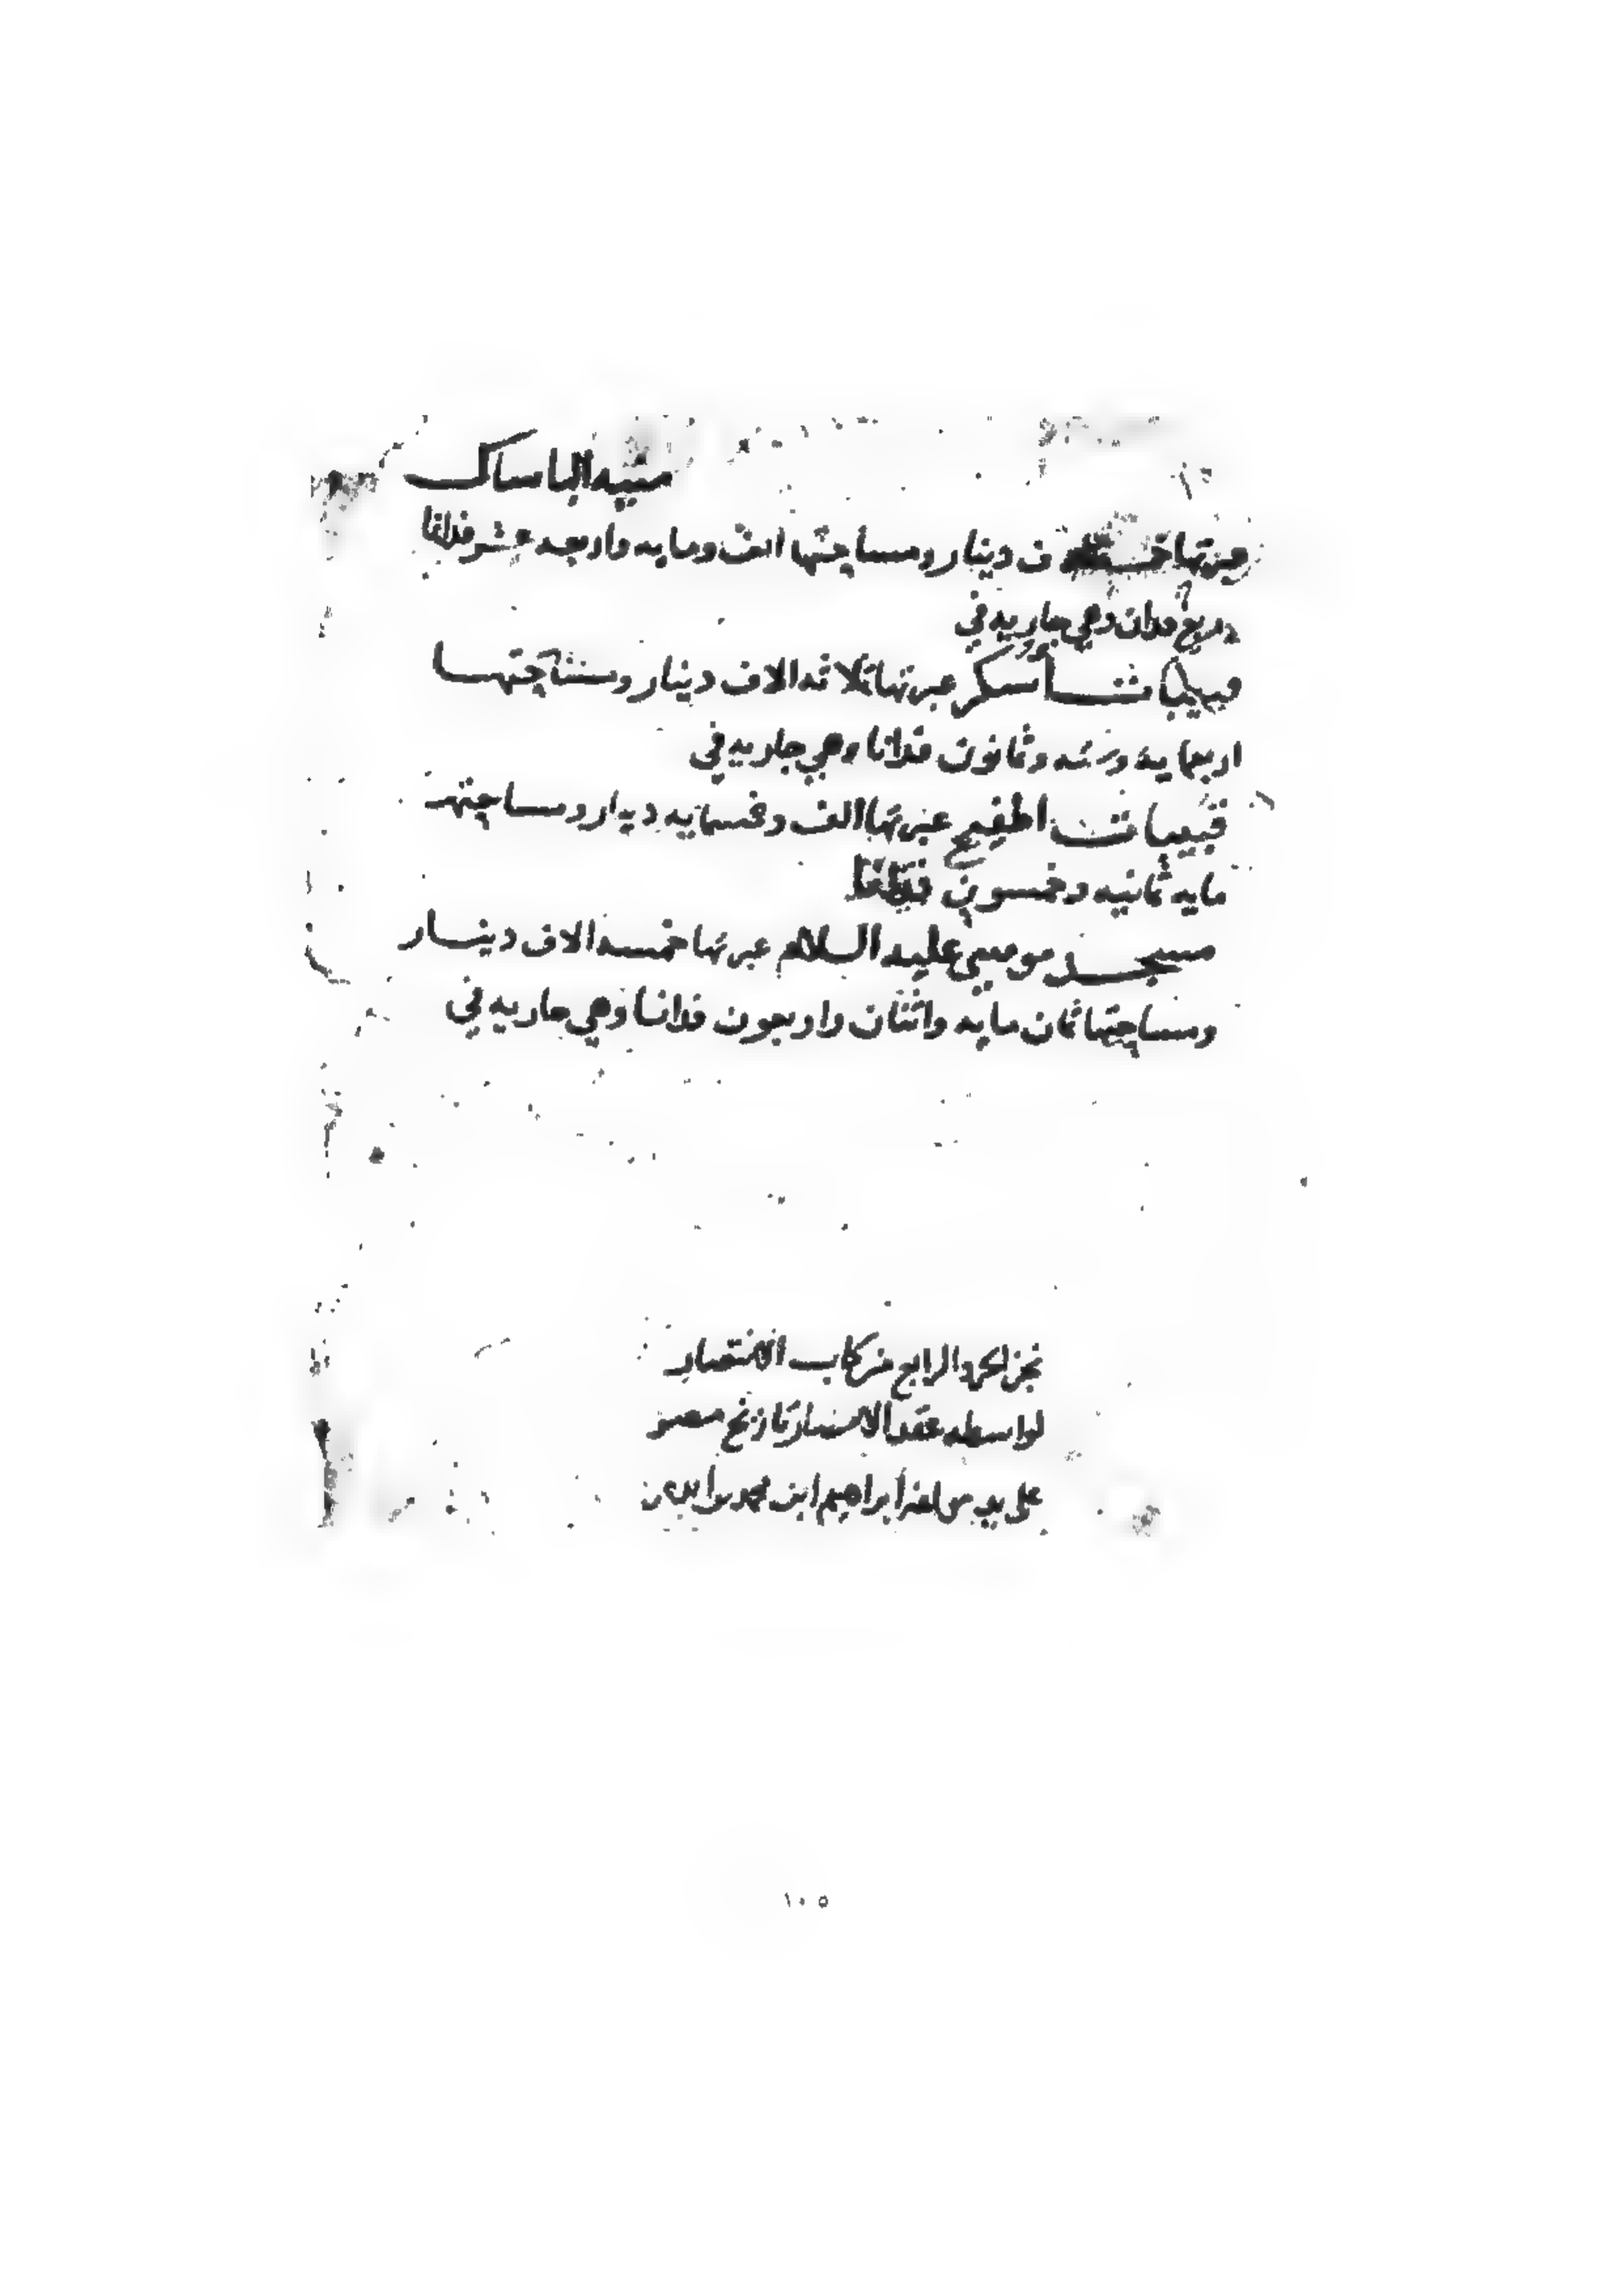 منيه الباساك
عبرتها خمسه الاف دينار ومساحتها الف ومايه واربعه عشر فدانا
وربع فدان وهي جاريه في
قبيبات اسكر عبرتها ثلاثه الاف دينار ومساحتها
اربعمايه وسته وثمانون فدانا وهي جاريه في
قبيبات اطفيح عبرتها الف وخمسمايه دينار ومساحتها
مايه ثمانيه وخمسون فدانا
مسجد موسى عليه السلام عبرتها خمسه الاف دينار
ومساحتها ثمان مايه واثنان واربعون فدانا وهي جاريه في
نجز الجزء الرابع من كتاب الانتصار
لواسطه عقد الامصار تاريخ مصر
على يد مولفه ابراهيم ابن محمد بن ايدمر
١٠٥